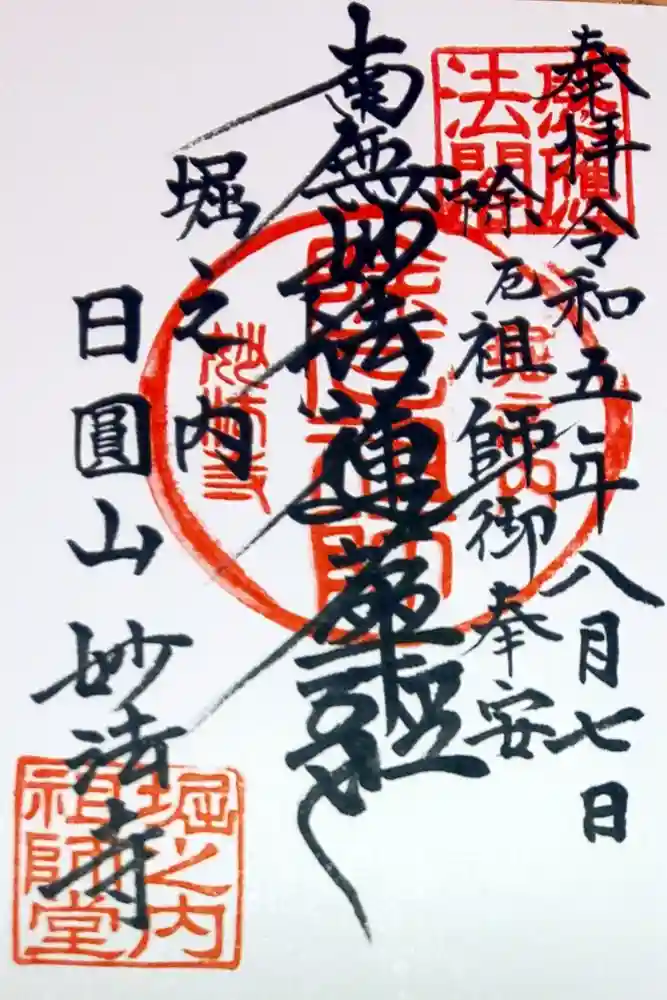 奉拝令和五年八月七日
除厄祖師御奉安
南無妙法蓮華経
堀之内
日圓山妙法寺
法門
除厄祖師
妙法寺
堀之内
祖師堂